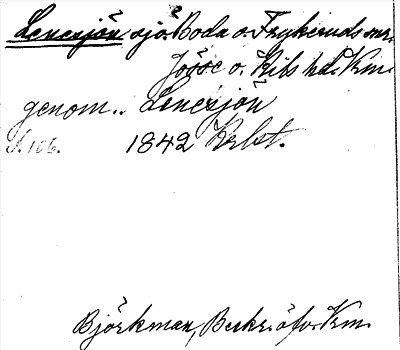 Lenesjön sjö. Boda o. Frykeruds snr.
Jösse o. Kils hd. Krm.
genom.. Lenesjön
S. 106. 1842 Krbt.
Björkman, Beskr. öfv. Krm.